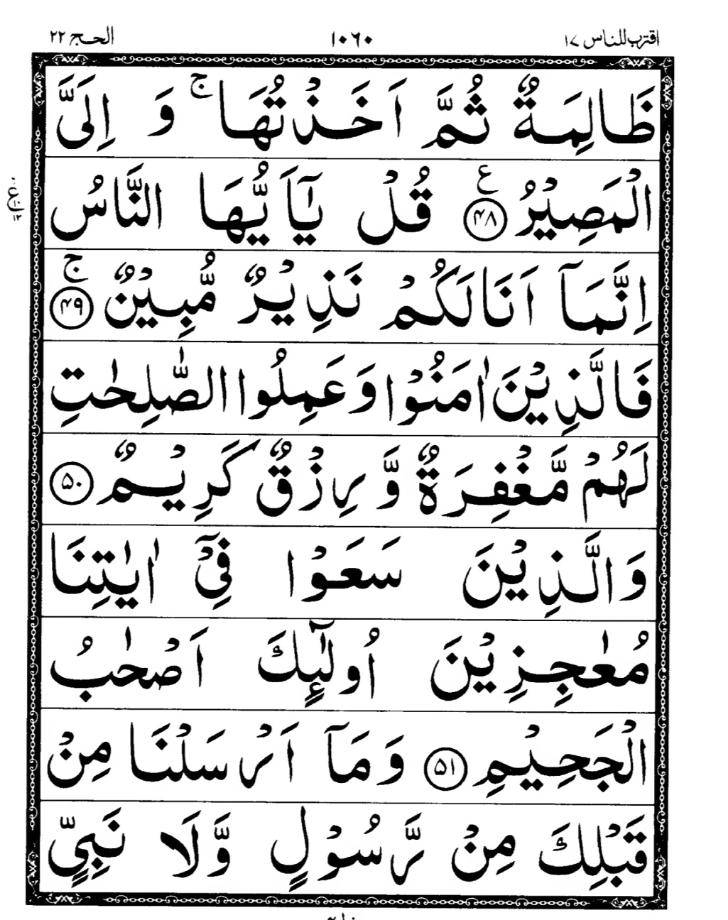 اقترب للناس ١٧ ١٠٦٠ الحج ٢٢
ظَالِمَةٌ ثُمَّ اَخَذْتُهَا ۚ وَ اِلَىَّ
الْمَصِيْرُ ع ۴۸ قُلْ يٰۤاَيُّهَا النَّاسُ
اِنَّمَاۤ اَنَا لَكُمْ نَذِيْرٌ مُّبِيْنٌ ۚ ۴۹
فَالَّذِيْنَ اٰمَنُوْا وَعَمِلُوا الصّٰلِحٰتِ
لَهُمْ مَّغْفِرَةٌ وَّ رِزْقٌ كَرِيْمٌ ۵۰
وَالَّذِيْنَ سَعَوْا فِىْۤ اٰيٰتِنَا
مُعٰجِزِيْنَ اُولٰٓئِكَ اَصْحٰبُ
الْجَحِيْمِ ۵۱ وَ مَاۤ اَرْسَلْنَا مِنْ
قَبْلِكَ مِنْ رَّسُوْلٍ وَّلَا نَبِىٍّ